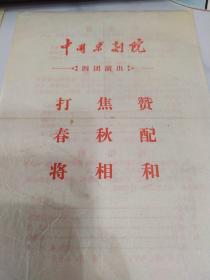 中国京剧院
四团演出
打焦赞
春秋配
将相和